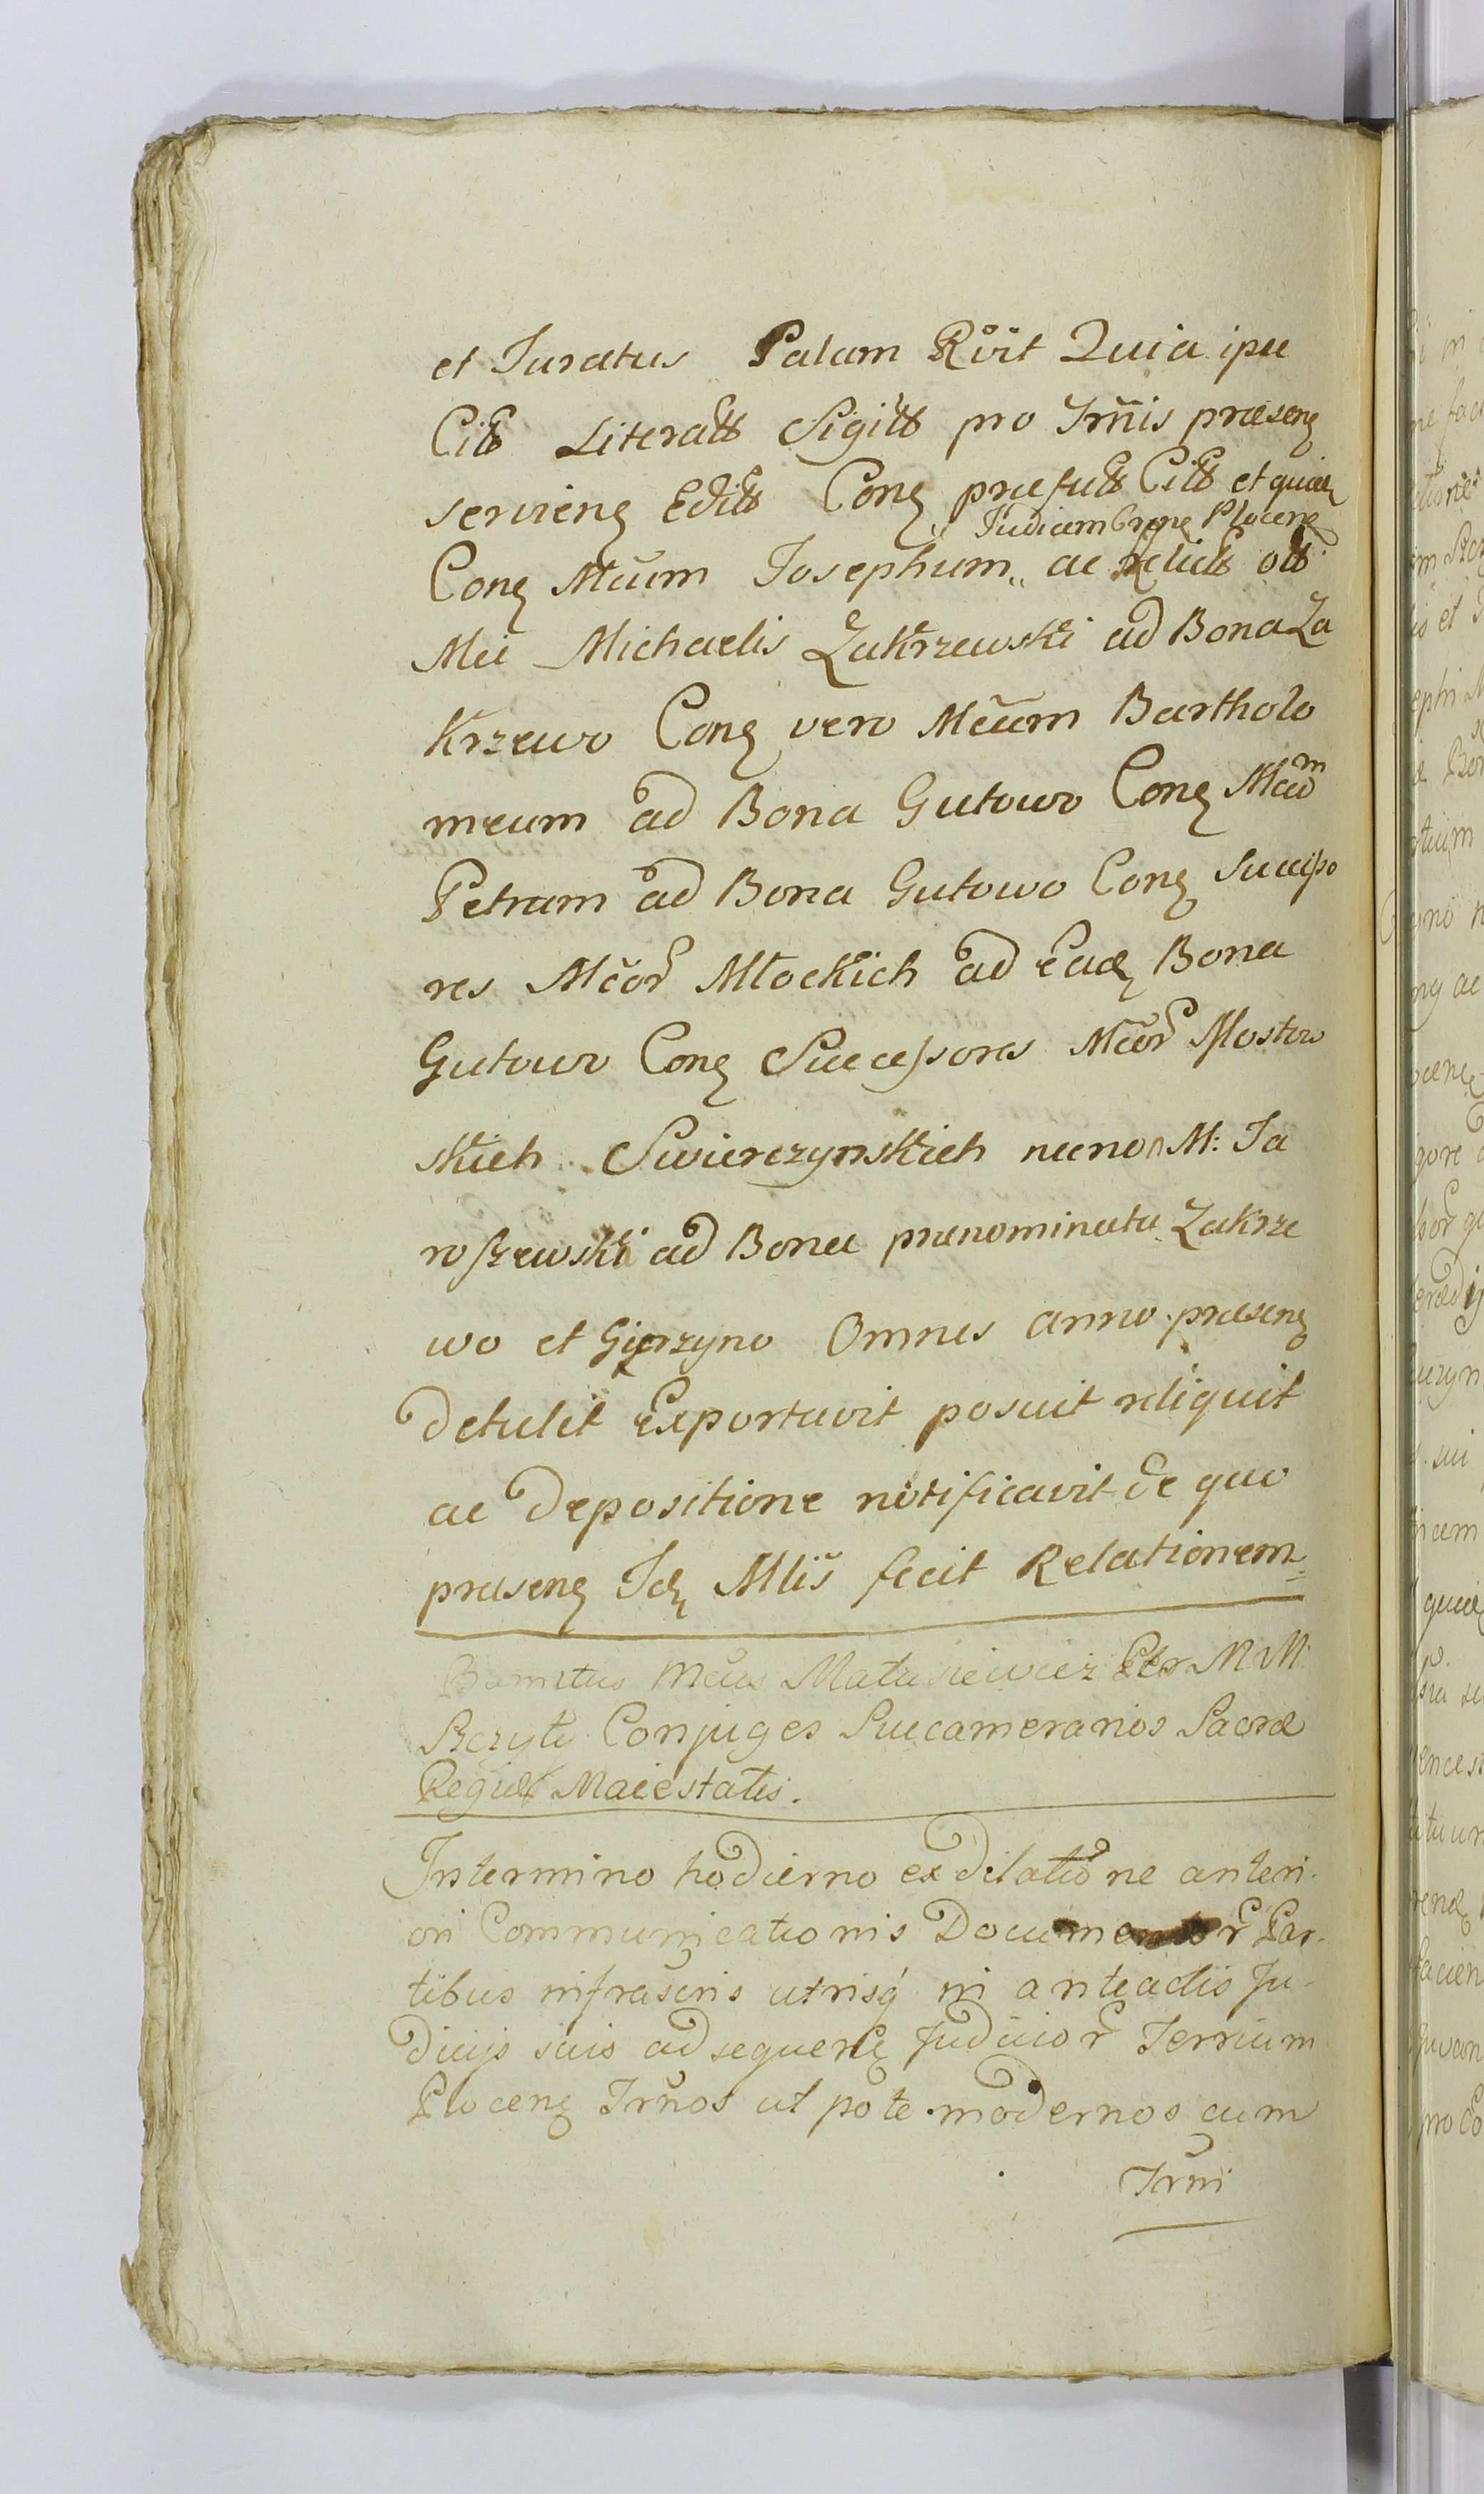 et Juratus Palam Rŏit Quia ipse
Citt Literatt Sigitt pro Trm̃is præsenȝ
servienȝ Editt Conȝ præfutt Citt et quidȝ
Judicem Crĕnȝ Plocenȝ
Conȝ Mcũm Josephum,, ac relictt ott
Mci Michaelis Zakrzewski ad Bona Za
krzewo Conȝ vero Mcũm Bartholo
meum ad Bona Gutowo Conȝ Mcũm
Petrum ad Bona Gutowo Conȝ Successo
res Mcor̃ Młockich ad Eadȝ Bona
Gutowo Conȝ Successores Mcor̃ Mostow
skich Swierczynskich necnon M: Ja
roszewski ad Bona prænominata Zakrze
wo et Gierzyno Omnes anno præsenȝ
detulit Exportavit posuit reliquit
ac depositione notificavit de quo
præsenȝ Idȝ Mlis̃ fecit Relationem
Banitus Mcus Matusiewicz Ctra MM:
Szczyty Conjuges Succamerarios Sacræ
Regiæ Maiestatis.
In termino hodierno ex dilatione anteri-
ori Communicationis Documentor̃ Par-
tibus infrascris utrisq́ in anteactis Ju-
dicijs suis ad sequenȝ Judicior̃ Terrium
Plocenȝ Trm̃os ut pote modernos cum
Trm̃i